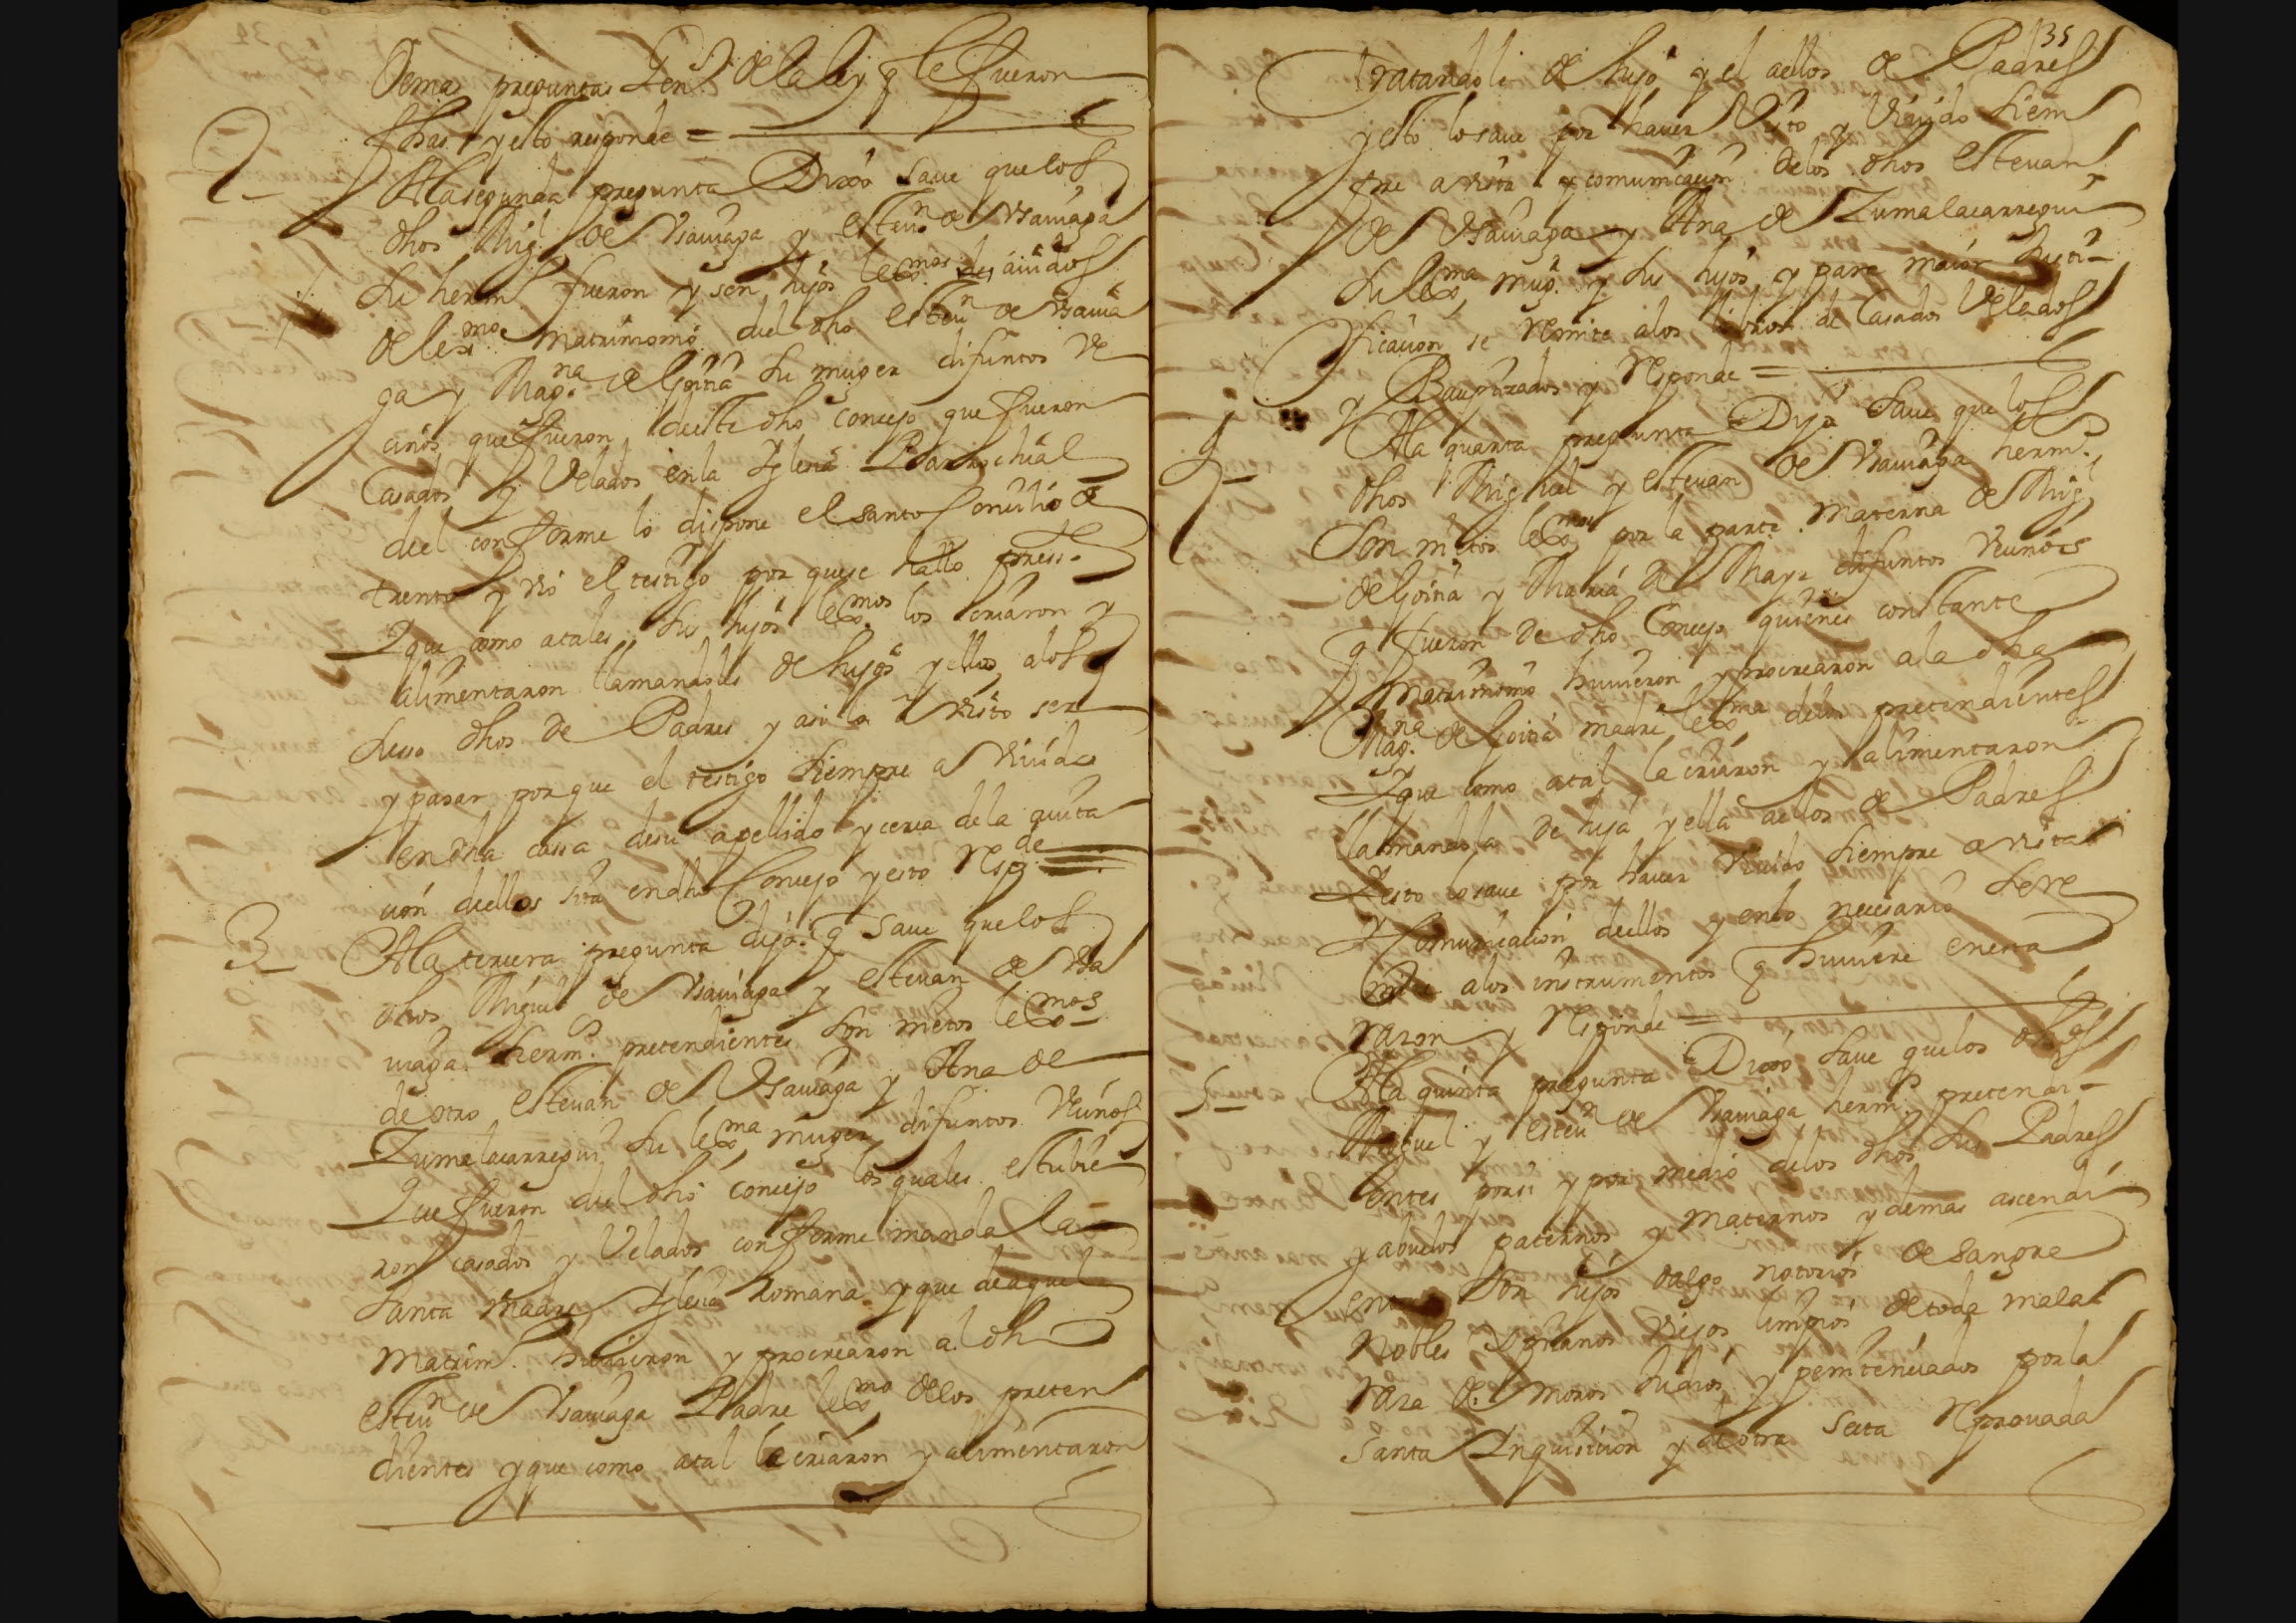 demas preguntas Gen.s de la ley q le fueron
fhas y esto responde =
2 A la segunda pregunta Dixo saue que los
dhos Mig.l de Vsauiaga y esteu.n de Vsauiaga
su herm.o fueron y son hijos lexmos auidos
de lex.mo matrimonio del dho esteu.n de Vsauia
ga y Mag.na de Goitia su muger difuntos ve
cinos que fueron deeste dho concejo que fueron
Casados y Velados en la Iglesia Parrochial
del conforme lo dispone el santo Concilio de
trento y vio el testigo por que se hallo press.te
Y que como a tales sus hijos lex.mos los criaron y
alimentaron llamandoles de hijos y ellos a los
suso dhos de Padres y asi lo a visto ser
y pasar por que el testigo siempre a viuido
en dha cassa de su apellido y cerca de la auita
cion dellos sita en dho Concejo y esto resp.de =
3 A la tercera pregunta dijo q saue que los
dhos Miguel de Vsauiaga y esteuan de Vsa
uiaga herm.s pretendientes son nietos lex.mos
de otro esteuan de Vsauiaga y Ana de
Zumalacarregui su lex.ma muger difuntos vecinos
Que fueron del dho concejo los quales estubie
ron casados y Velados conforme manda la
santa Madre Iglesia Romana y que de aquel
Matrim.o hubieron y procrearon al dho
esteu.n de Vsauiaga Padre lex.mo de los preten
dientes y que como a tal le criaron y alimentaron
135
tratandole de hijo y el a ellos de Padres
y esto lo saue por hauer Visto y Viuido siem
pre a vista y comunicacion de los dhos esteuan
de Vsauiaga y Ana de Zumalacarregui
su lex.ma mug.r y sus hijos y para maior justi
ficacion se remite a los libros de Casados Velados
y Bauptizados y responde =
4 A la quarta pregunta Dijo saue que los
dhos Mighel y esteuan de Vsauiaga herm.s
son nietos lex.mos por la parte Materna de Mig.l
de Goitia y Maria de difuntos vecinos
q fueron de dho Concejo quienes constante
Matrimonio huuieron y procrearon a la dha
Mag.na de Goitia madre lex.ma de los pretendientes
Y que como a tal la criaron y alimentaron
llamandola de hija y ella a ellos de Padres
Y esto lo saue por hauer viuido siempre a vista
y Comunicacion dellos y en lo necesario se re
mite a los instrumentos q huuiere en esta
razon y responde =
5 A la quinta pregunta Dixo saue que los dhos
Miguel y esteu.n de Vsauiaga herm.s pretendi
entes por si y por medio de los dhos sus Padres
y abuelos paternos y Maternos y demas ascendi
entes son hijos dalgo notorios de sangre
Nobles Xpianos viejos limpios de toda mala
raza de moros Judios y penitenciados por la
Santa Inquisicion y de otra secta reprouada